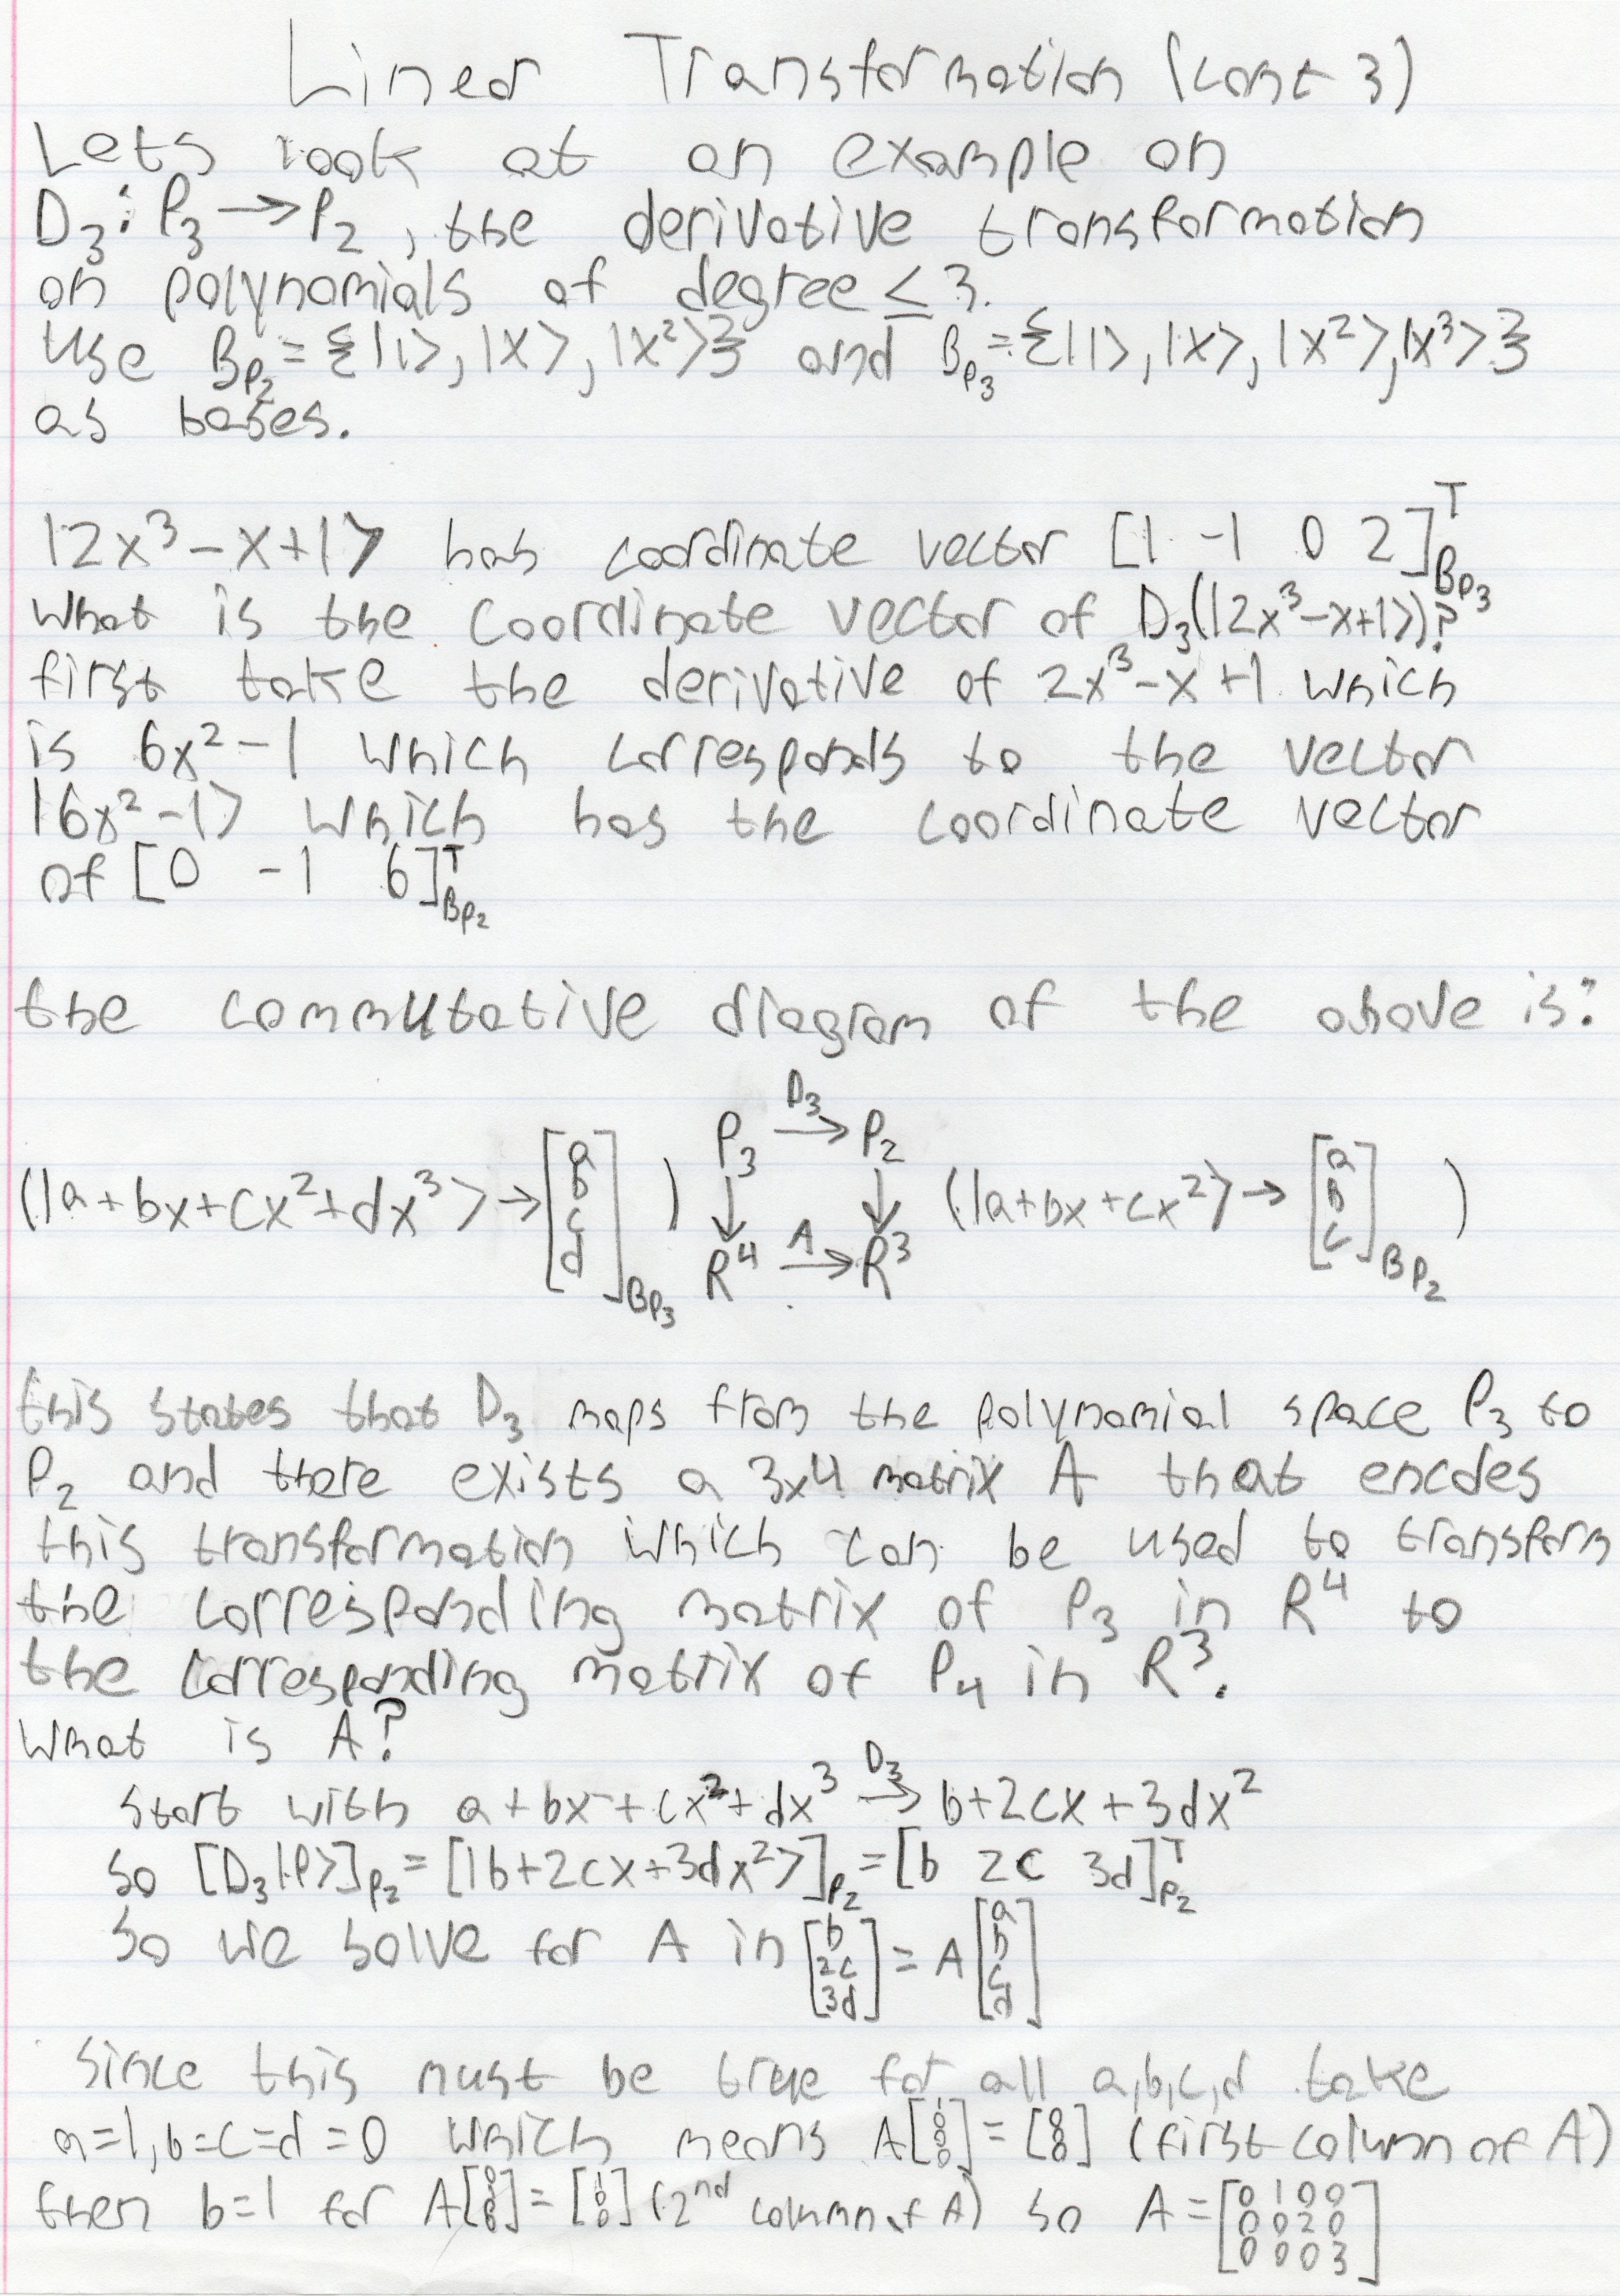 Linear Transformation (cont 3)
Lets look at an example on
D₃: P₃ → P₂, the derivative transformation
on polynomials of degree ≤ 3.
Use B_P₂ = {|1>, |x>, |x²>} and B_P₃ = {|1>, |x>, |x²>, |x³>}
as bases.
|2x³-x+1> has coordinate vector [1 -1 0 2]ᵀ_B_P₃
What is the coordinate vector of D₃(|2x³-x+1>)?
first take the derivative of 2x³-x+1 which
is 6x²-1 which corresponds to the vector
|6x²-1> which has the coordinate vector
of [0 -1 6]ᵀ_B_P₂
the commutative diagram of the above is:
P₃ →(D₃) P₂
(|a+bx+cx²+dx³> → [a b c d]_B_P₃) ↓ ↓ (|a+bx+cx²> → [a b c]_B_P₂)
R⁴ →(A) R³
this states that D₃ maps from the polynomial space P₃ to
P₂ and there exists a 3x4 matrix A that encdes
this transformation which can be used to transform
the corresponding matrix of P₃ in R⁴ to
the corresponding matrix of P₄ in R³.
What is A?
start with a+bx+cx²+dx³ →(D₃) b+2cx+3dx²
so [D₃|P>]_P₂ = [|b+2cx+3dx²>]_P₂ = [b 2c 3d]ᵀ_P₂
so we solve for A in [b 2c 3d] = A [a b c d]
since this must be true for all a,b,c,d take
a=1, b=c=d=0 which means A[1 0 0 0] = [0 0 0] (first column of A)
then b=1 for A[0 1 0 0] = [1 0 0] (2nd column of A) so A = [0 1 0 0
0 0 2 0
0 0 0 3]